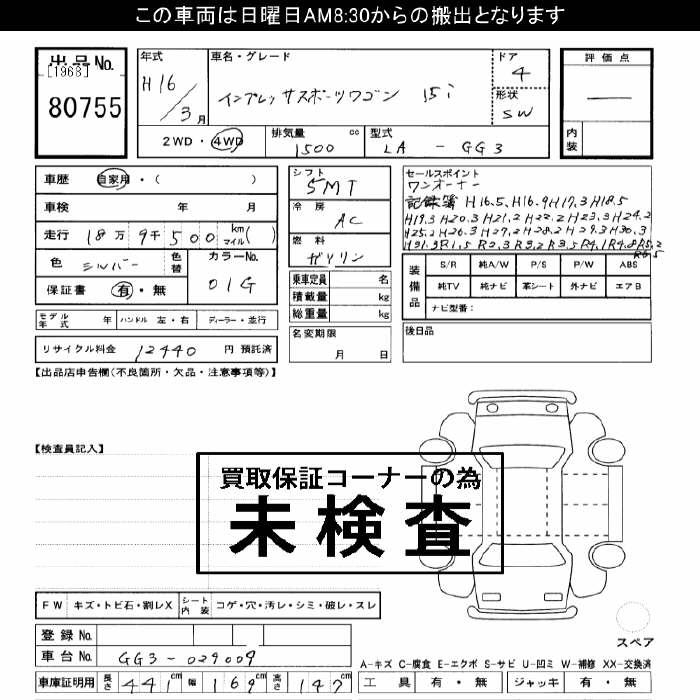 この車両は日曜日AM8:30からの搬出となります
出品No.
[1968]
80755
年式
H16/3月
車名・グレード
インプレッサスポーツワゴン 15i
ドア
4
形状
SW
評価点
―
内装
2WD・4WD
排気量
1500 cc
型式
LA - GG3
車歴 自家用・( )
車検 年 月
走行 18万9千500 km マイル( )
色 シルバー 色替
カラーNo. 01G
保証書 有・無
シフト
5MT
冷房
AC
燃料
ガソリン
乗車定員 名
積載量 kg
総重量 kg
名変期限
月 日
セールスポイント
ワンオーナー
記録簿 H16.5、H16.9 H17.3 H18.5
H19.3 H20.3 H21.2 H22.2 H23.3 H24.2
H25.2 H26.3 H27.2 H28.2 H29.3 H30.3
H31.3 R1.5 R2.3 R3.2 R3.5 R4.1 R4.8 R5.2
R6.5
装備品
S/R 純A/W P/S P/W ABS
純TV 純ナビ 革シート 外ナビ エアB
ナビ型番：
後日品
モデル年式 年 ハンドル 左・右 ディーラー・並行
リサイクル料金 12440 円 預託済
【出品店申告欄(不良箇所・欠品・注意事項等)】
【検査員記入】
買取保証コーナーの為
未検査
FW キズ・トビ石・割レX シート内装 コゲ・穴・汚レ・シミ・破レ・スレ
登録No.
車台No. GG3-029009
車庫証明用 長さ 441 cm 幅 169 cm 高さ 147 cm
スペア
A-キズ C-腐食 E-エクボ S-サビ U-凹ミ W-補修 XX-交換済
工具 有・無 ジャッキ 有・無